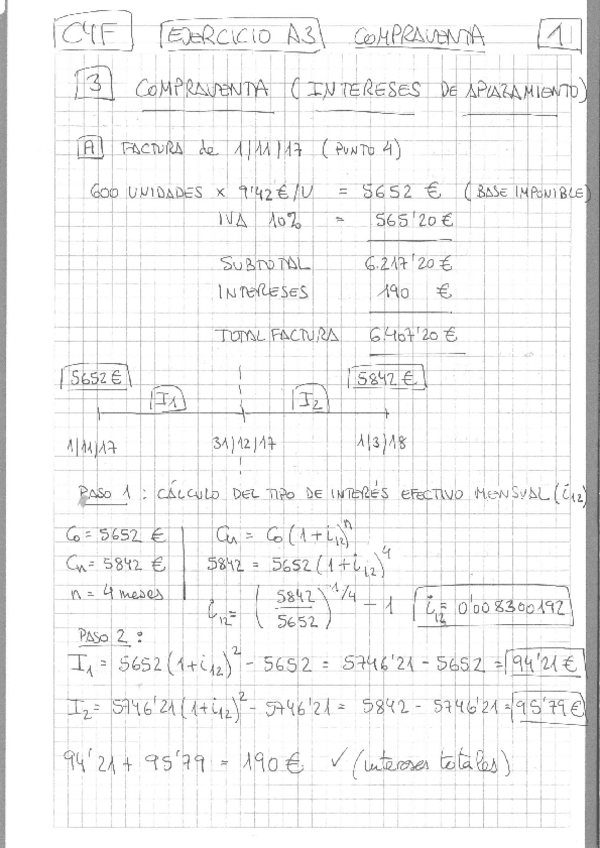 CYF EJERCICIO A3 COMPRAVENTA 1
3 COMPRAVENTA (INTERESES DE APLAZAMIENTO)
A FACTURA de 1/11/17 (PUNTO 4)
600 UNIDADES × 9'42€/U = 5652 € (BASE IMPONIBLE)
IVA 10% = 565'20€
SUBTOTAL 6.217'20€
INTERESES 190 €
TOTAL FACTURA 6.407'20€
5652€ I1 I2 5842€
1/11/17 31/12/17 1/3/18
PASO 1: CÁLCULO DEL TIPO DE INTERÉS EFECTIVO MENSUAL (i12)
C0 = 5652 € Cn = C0(1+i12)^n
Cn = 5842 € 5842 = 5652(1+i12)^4
n = 4 meses i12 = (5842/5652)^1/4 - 1 i12 = 0'008300192
PASO 2:
I1 = 5652(1+i12)^2 - 5652 = 5746'21 - 5652 = 94'21€
I2 = 5746'21(1+i12)^2 - 5746'21 = 5842 - 5746'21 = 95'79€
94'21 + 95'79 = 190€ ✓ (intereses totales)